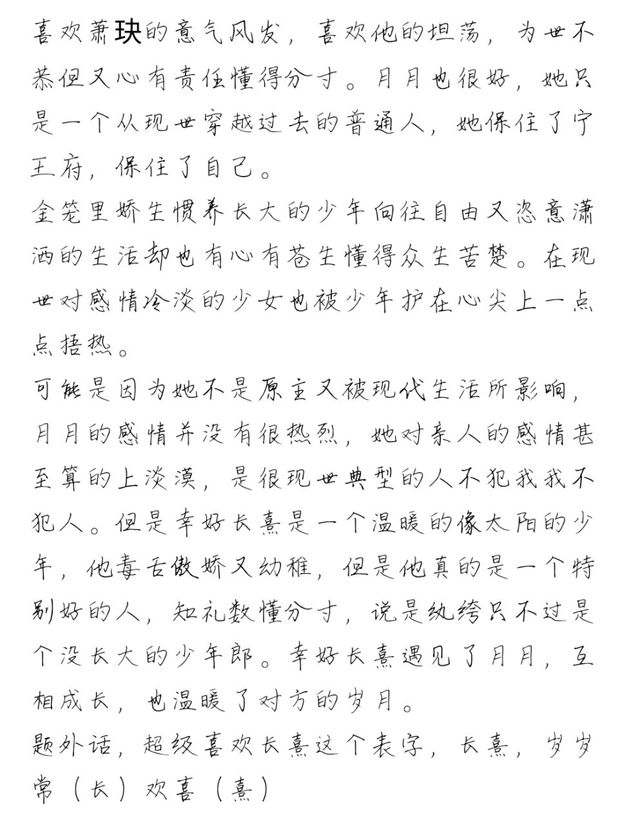 喜欢萧玦的意气风发，喜欢他的坦荡，为世不
恭但又心有责任懂得分寸。月月也很好，她只
是一个从现世穿越过去的普通人，她保住了宁
王府，保住了自己。
金笼里娇生惯养长大的少年向往自由又恣意潇
洒的生活却也有心有苍生懂得众生苦楚。在现
世对感情冷淡的少女也被少年护在心尖上一点
点捂热。
可能是因为她不是原主又被现代生活所影响，
月月的感情并没有很热烈，她对亲人的感情甚
至算的上淡漠，是很现世典型的人不犯我我不
犯人。但是幸好长熹是一个温暖的像太阳的少
年，他毒舌傲娇又幼稚，但是他真的是一个特
别好的人，知礼数懂分寸，说是纨绔只不过是
个没长大的少年郎。幸好长熹遇见了月月，互
相成长，也温暖了对方的岁月。
题外话，超级喜欢长熹这个表字，长熹，岁岁
常（长）欢喜（熹）